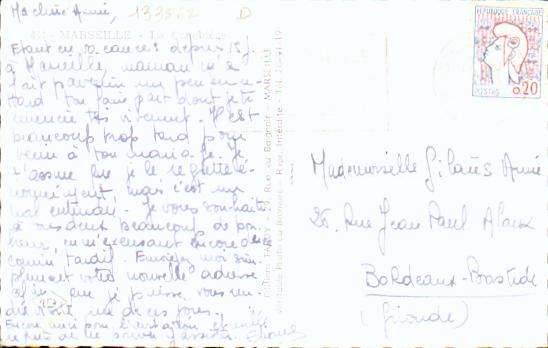 Ma chère Annie,
133562 D
MARSEILLE - La Canebière
Etant en vacances depuis 15 j.
à Marseille, maman m'a
fait parvenir un peu en re-
tard ton faire part dont je te
remercie très vivement. Il est
beaucoup trop tard pour
venir à ton mariage. Je
t'assure que je le regrette é-
normément, mais c'est un
mal entendu. Je vous souhaite
à tes deux beaucoup de bon-
heur, en m'excusant encore de ce
courrier tardif. Envoyez moi sim-
plement votre nouvelle adresse
afin que je puisse vous ren-
dre visite un de ces jours.
Encore merci pour l'invitation et mille
de ne pouvoir y assister.
Editions TARDY - 19, Rue du Baignoir - MARSEILLE - Tél. 20-9119
Véritable Photo au Bromure - Repr. Interdite
REPUBLIQUE FRANÇAISE
POSTES 0,20
Mademoiselle Gilabès Annie
25, Rue Jean Paul Alaux
Bordeaux-Bastide
(Gironde)